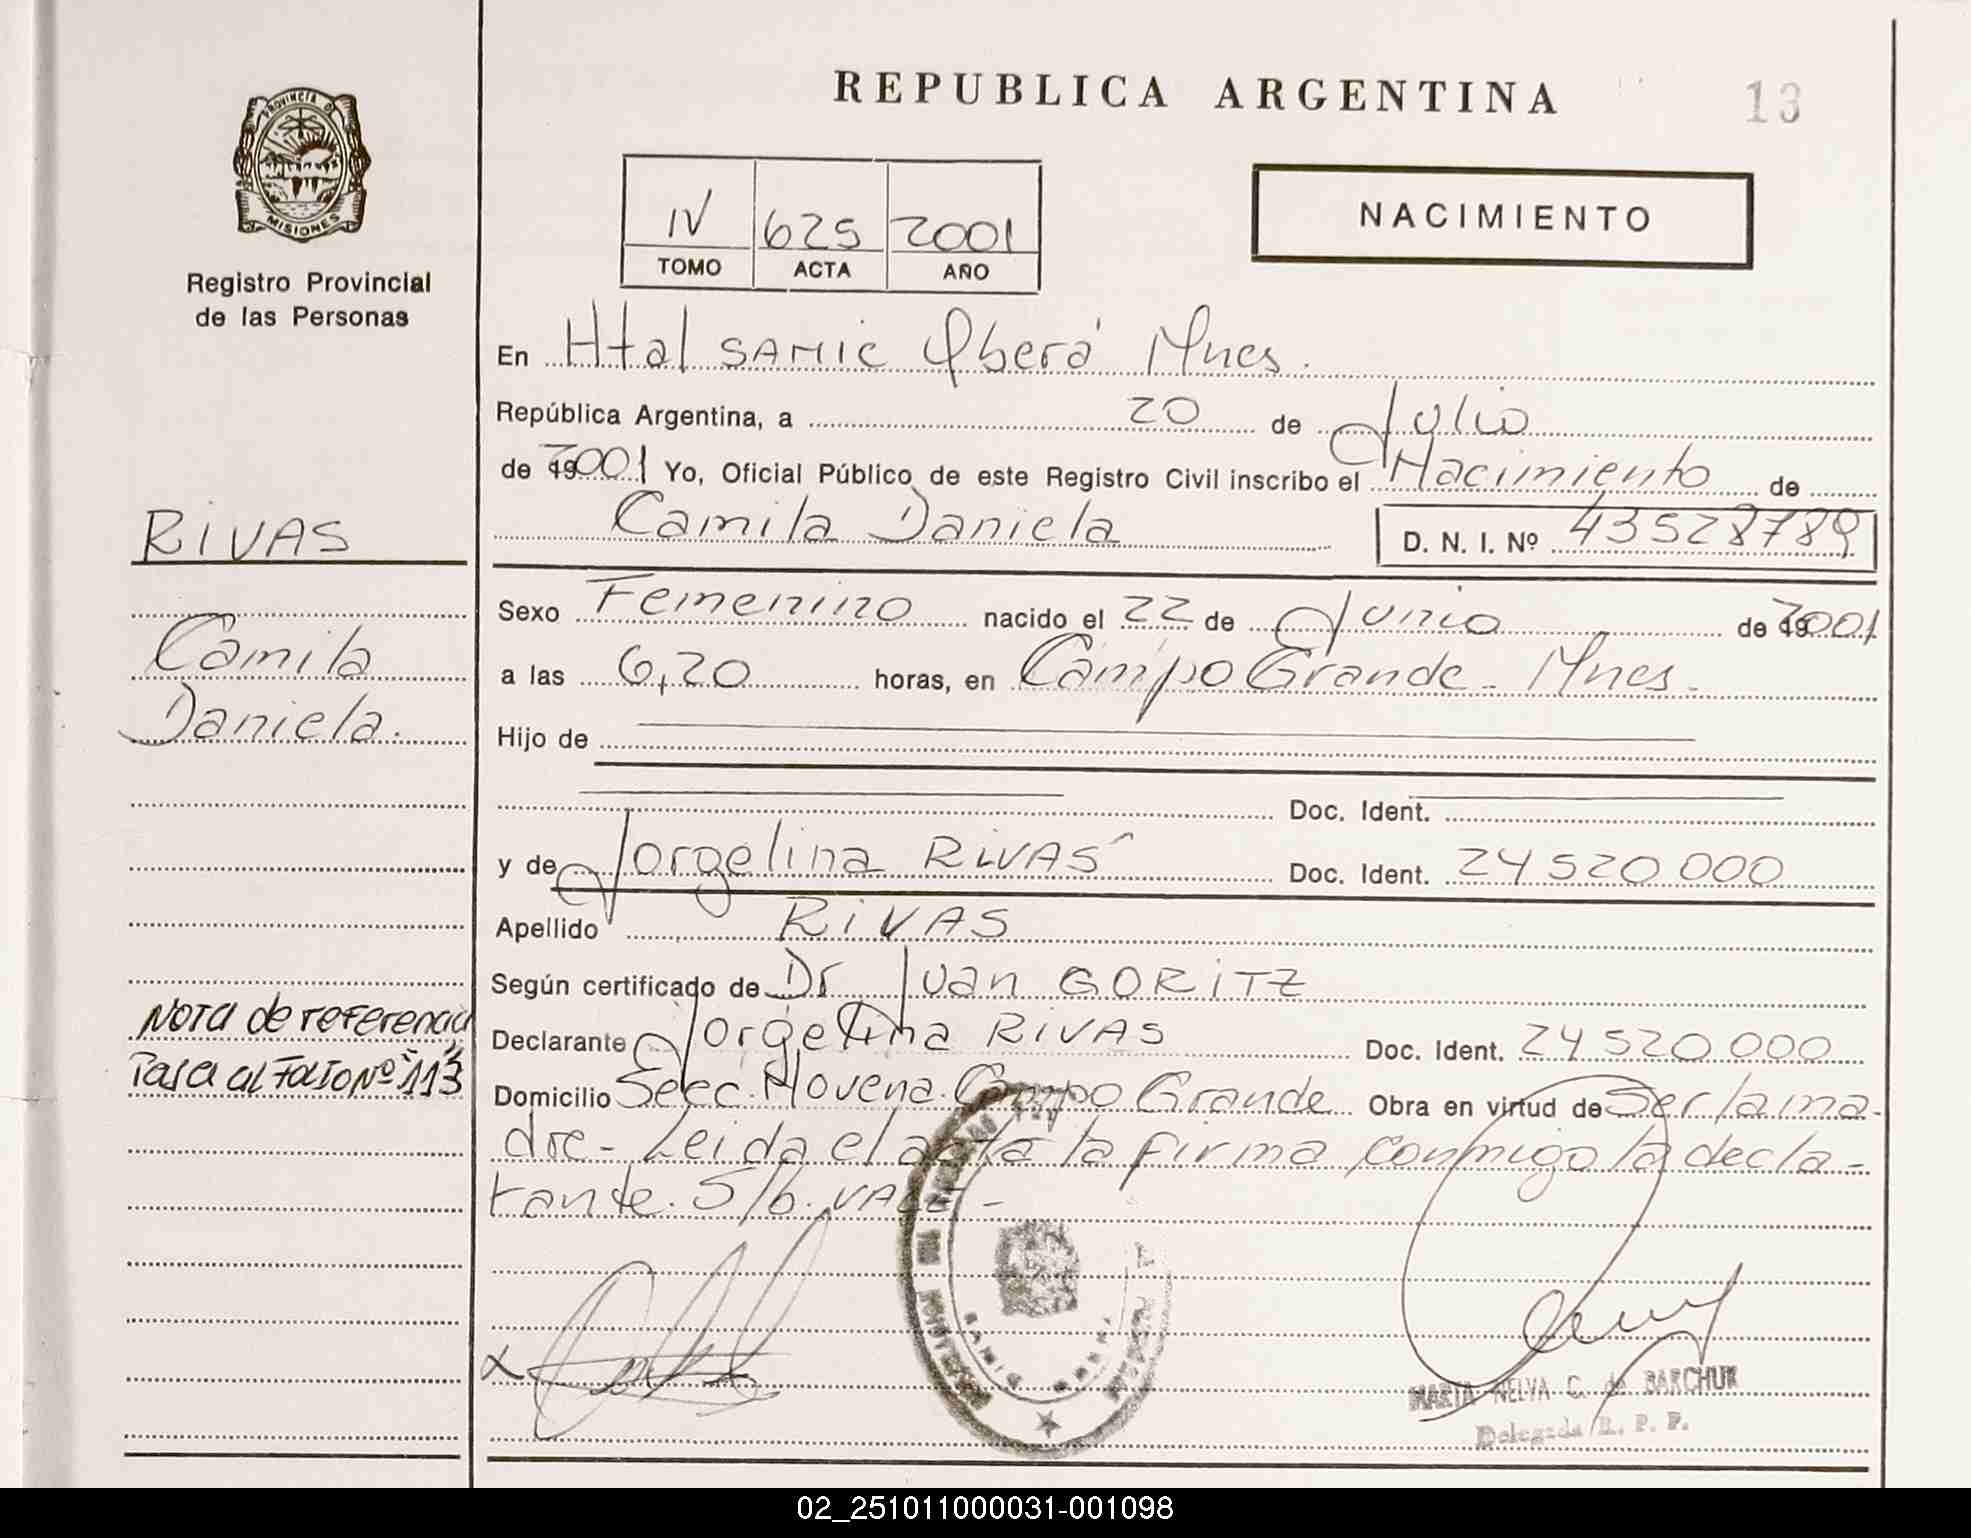 REPUBLICA ARGENTINA
13
PROVINCIA D
MISIONES
Registro Provincial
de las Personas
IV 625 2001
TOMO ACTA AÑO
NACIMIENTO
En Htal SAMIC Oberá Mnes.
República Argentina, a 20 de Julio
de 2001 Yo, Oficial Público de este Registro Civil inscribo el Nacimiento de
Camila Daniela D. N. I. Nº 43528789
RIVAS
Camila
Daniela.
Sexo Femenino nacido el 22 de Junio de 2001
a las 6,20 horas, en Campo Grande - Mnes.
Hijo de
Doc. Ident.
y de Jorgelina RIVAS Doc. Ident. 24520000
Apellido RIVAS
Según certificado de Dr Juan GORITZ
Declarante Jorgelina RIVAS Doc. Ident. 24520000
Domicilio Secc. Novena. Campo Grande Obra en virtud de Ser la ma-
dre - Leida el acta la firma conmigo la decla-
rante. S/b. VALE -
Nota de referencia
Pasa al Folio Nº "113
MARTA NELVA C. de BARCHUK
Delegada R. P. P.
02_251011000031-001098